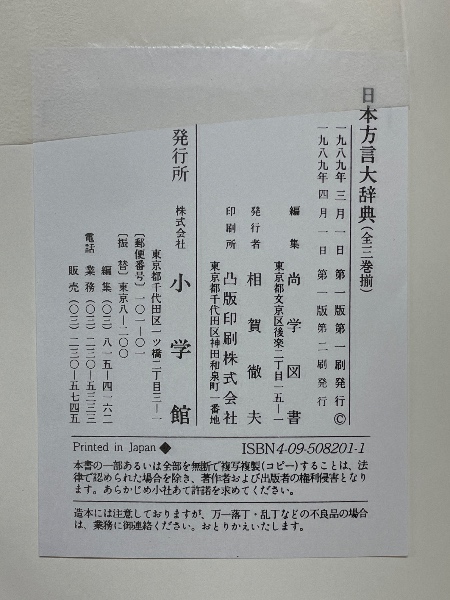 日本方言大辞典(全三巻揃)
一九八九年三月一日 第一版第一刷発行©
一九八九年四月一日 第一版第二刷発行
編集 尚学図書
東京都文京区後楽二丁目一五ー一
発行者 相賀徹夫
印刷所 凸版印刷株式会社
東京都千代田区神田和泉町一番地
発行所 株式会社 小学館
東京都千代田区一ツ橋二丁目三ー一
〔郵便番号〕一〇一ー〇一
〔振替〕東京八ー二〇〇
電話 編集(〇三)八一五ー四一六二
業務(〇三)二三〇ー五三三三
販売(〇三)二三〇ー五七四五
Printed in Japan◆ ISBN4-09-508201-1
本書の一部あるいは全部を無断で複写複製(コピー)することは、法
律で認められた場合を除き、著作者および出版者の権利侵害となり
ます。あらかじめ小社あて許諾を求めてください。
造本には注意しておりますが、万一落丁・乱丁などの不良品の場合
は、業務に御連絡ください。おとりかえいたします。